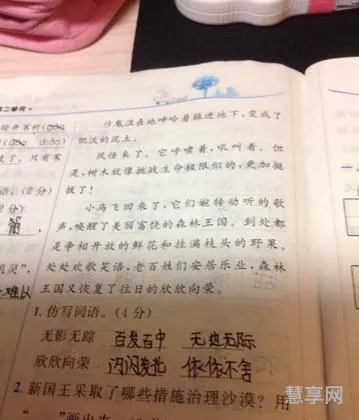 沙鬼沮丧地呻吟着躲进地下，变成了
肥沃的泥土。
风怪来了，它呼啸着，吼叫着。但
是，树木就像挑战生命极限似的，更加挺
拔了！
小鸟飞回来了，它们婉转动听的歌
声，唤醒了美丽富饶的森林王国。到处都
是争相开放的鲜花和挂满枝头的野果。
处处欢歌笑语，老百姓们安居乐业，森林
王国又恢复了往日的欣欣向荣。
1. 仿写词语。（4 分）
无影无踪 百发百中 无边无际
欣欣向荣 闪闪发光 依依不舍
2. 新国王采取了哪些措施治理沙漠？用
画出来
慧享网
diāo)
了，只有茗
语。（2分）
2分）
机灵”，
难以